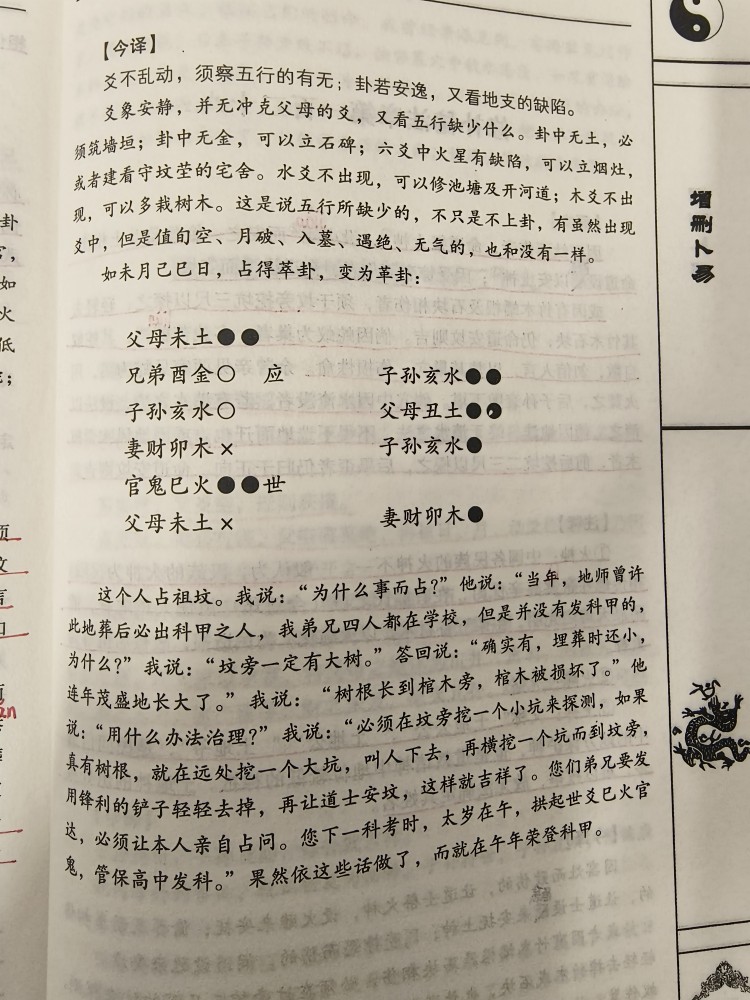 【今译】
爻不乱动，须察五行的有无；卦若安逸，又看地支的缺陷。
爻象安静，并无冲克父母的爻，又看五行缺少什么。卦中无土，必
须筑墙垣；卦中无金，可以立石碑；六爻中火星有缺陷，可以立烟灶，
或者建看守坟茔的宅舍。水爻不出现，可以修池塘及开河道；木爻不出
现，可以多栽树木。这是说五行所缺少的，不只是不上卦，有虽然出现
爻中，但是值旬空、月破、入墓、遇绝、无气的，也和没有一样。
如未月己巳日，占得萃卦，变为革卦：
父母未土●●
兄弟酉金○ 应 子孙亥水●●
子孙亥水○ 父母丑土●●
妻财卯木× 子孙亥水●
官鬼巳火●●世
父母未土× 妻财卯木●
这个人占祖坟。我说：“为什么事而占？”他说：“当年，地师曾许
此地葬后必出科甲之人，我弟兄四人都在学校，但是并没有发科甲的，
为什么？”我说：“坟旁一定有大树。”答回说：“确实有，埋葬时还小，
连年茂盛地长大了。”我说：“树根长到棺木旁，棺木被损坏了。”他
说：“用什么办法治理？”我说：“必须在坟旁挖一个小坑来探测，如果
真有树根，就在远处挖一个大坑，叫人下去，再横挖一个坑而到坟旁，
用锋利的铲子轻轻去掉，再让道士安坟，这样就吉祥了。您们弟兄要发
达，必须让本人亲自占问。您下一科考时，太岁在午，拱起世爻巳火官
鬼，管保高中发科。”果然依这些话做了，而就在午年荣登科甲。